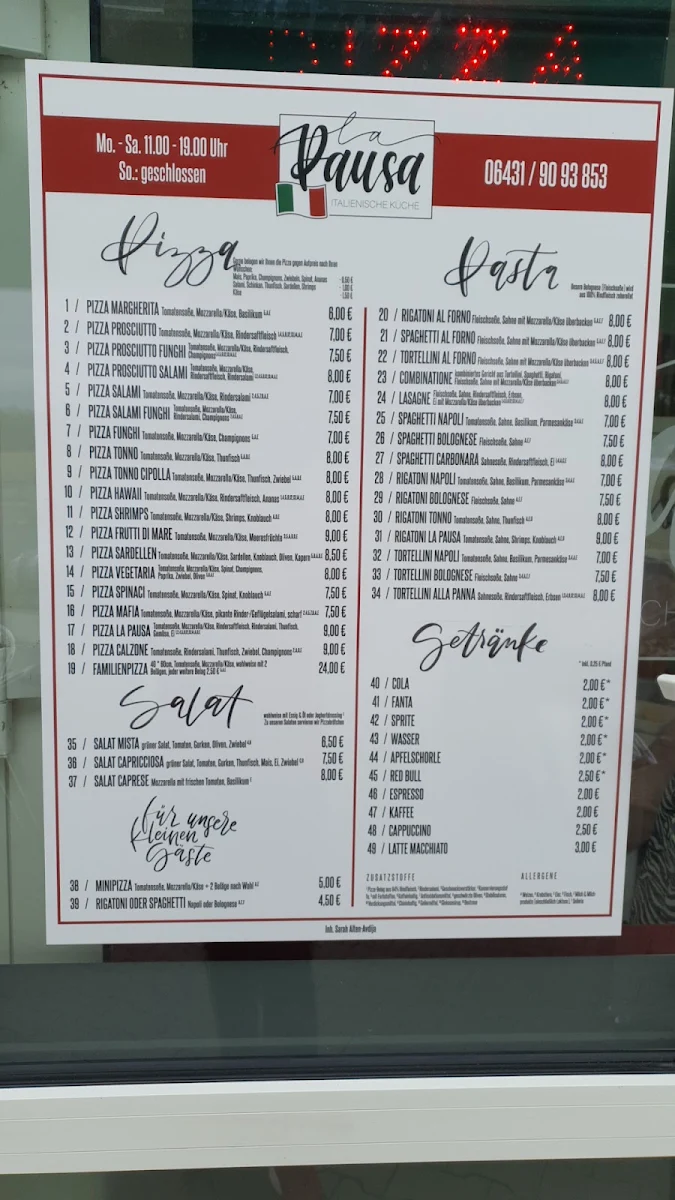 PIZZA
Mo. - Sa. 11.00 - 19.00 Uhr
So.: geschlossen
la
Pausa
ITALIENISCHE KÜCHE
06431 / 90 93 853
Pizza
Gerne belegen wir Ihnen die Pizza gegen Aufpreis nach Ihren
Wünschen:
Mais, Paprika, Champignons, Zwiebeln, Spinat, Ananas - 0,50 €
Salami, Schinken, Thunfisch, Sardellen, Shrimps - 1,00 €
Käse - 1,50 €
1 / PIZZA MARGHERITA Tomatensoße, Mozzarella/Käse, Basilikum 6,00 €
2 / PIZZA PROSCIUTTO Tomatensoße, Mozzarella/Käse, Rindersaftfleisch 7,00 €
3 / PIZZA PROSCIUTTO FUNGHI Tomatensoße, Mozzarella/Käse, Rindersaftfleisch, Champignons 7,50 €
4 / PIZZA PROSCIUTTO SALAMI Tomatensoße, Mozzarella/Käse, Rindersaftfleisch, Rindersalami 8,00 €
5 / PIZZA SALAMI Tomatensoße, Mozzarella/Käse, Rindersalami 7,00 €
6 / PIZZA SALAMI FUNGHI Tomatensoße, Mozzarella/Käse, Rindersalami, Champignons 7,50 €
7 / PIZZA FUNGHI Tomatensoße, Mozzarella/Käse, Champignons 7,00 €
8 / PIZZA TONNO Tomatensoße, Mozzarella/Käse, Thunfisch 8,00 €
9 / PIZZA TONNO CIPOLLA Tomatensoße, Mozzarella/Käse, Thunfisch, Zwiebel 8,00 €
10 / PIZZA HAWAII Tomatensoße, Mozzarella/Käse, Rindersaftfleisch, Ananas 8,00 €
11 / PIZZA SHRIMPS Tomatensoße, Mozzarella/Käse, Shrimps, Knoblauch 8,00 €
12 / PIZZA FRUTTI DI MARE Tomatensoße, Mozzarella/Käse, Meeresfrüchte 9,00 €
13 / PIZZA SARDELLEN Tomatensoße, Mozzarella/Käse, Sardellen, Knoblauch, Oliven, Kapern 8,50 €
14 / PIZZA VEGETARIA Tomatensoße, Mozzarella/Käse, Spinat, Champignons, Paprika, Zwiebel, Oliven 8,00 €
15 / PIZZA SPINACI Tomatensoße, Mozzarella/Käse, Spinat, Knoblauch 7,50 €
16 / PIZZA MAFIA Tomatensoße, Mozzarella/Käse, pikante Rinder-/Geflügelsalami, scharf 7,50 €
17 / PIZZA LA PAUSA Tomatensoße, Mozzarella/Käse, Rindersaftfleisch, Rindersalami, Thunfisch, Gemüse, Ei 9,00 €
18 / PIZZA CALZONE Tomatensoße, Rindersaftfleisch, Rindersalami, Thunfisch, Zwiebel, Champignons 9,00 €
19 / FAMILIENPIZZA 40 * 60cm, Tomatensoße, Mozzarella/Käse, wahlweise mit 2 Belägen, jeder weitere Belag 2,50 € 24,00 €
Salat
wahlweise mit Essig & Öl oder Joghurtdressing
Zu unseren Salaten servieren wir Pizzabrötchen
35 / SALAT MISTA grüner Salat, Tomaten, Gurken, Oliven, Zwiebel 6,50 €
36 / SALAT CAPRICCIOSA grüner Salat, Tomaten, Gurken, Thunfisch, Mais, Ei, Zwiebel 7,50 €
37 / SALAT CAPRESE Mozzarella mit frischen Tomaten, Basilikum 8,00 €
für unsere
kleinen
Gäste
38 / MINIPIZZA Tomatensoße, Mozzarella/Käse + 2 Beläge nach Wahl 5,00 €
39 / RIGATONI ODER SPAGHETTI Napoli oder Bolognese 4,50 €
Pasta
Unsere Bolognese (Fleischsoße) wird
aus 100% Rindfleisch zubereitet
20 / RIGATONI AL FORNO Fleischsoße, Sahne mit Mozzarella/Käse überbacken 8,00 €
21 / SPAGHETTI AL FORNO Fleischsoße, Sahne mit Mozzarella/Käse überbacken 8,00 €
22 / TORTELLINI AL FORNO Fleischsoße, Sahne mit Mozzarella/Käse überbacken 8,00 €
23 / COMBINATIONE kombiniertes Gericht aus Tortellini, Spaghetti, Rigatoni, Fleischsoße, Sahne mit Mozzarella/Käse überbacken 8,00 €
24 / LASAGNE Fleischsoße, Sahne, Rindersaftfleisch, Erbsen, Ei mit Mozzarella/Käse überbacken 8,00 €
25 / SPAGHETTI NAPOLI Tomatensoße, Sahne, Basilikum, Parmesankäse 7,00 €
26 / SPAGHETTI BOLOGNESE Fleischsoße, Sahne 7,50 €
27 / SPAGHETTI CARBONARA Sahnesoße, Rindersaftfleisch, Ei 8,00 €
28 / RIGATONI NAPOLI Tomatensoße, Sahne, Basilikum, Parmesankäse 7,00 €
29 / RIGATONI BOLOGNESE Fleischsoße, Sahne 7,50 €
30 / RIGATONI TONNO Tomatensoße, Sahne, Thunfisch 8,00 €
31 / RIGATONI LA PAUSA Tomatensoße, Sahne, Shrimps, Knoblauch 9,00 €
32 / TORTELLINI NAPOLI Tomatensoße, Sahne, Basilikum, Parmesankäse 7,00 €
33 / TORTELLINI BOLOGNESE Fleischsoße, Sahne 7,50 €
34 / TORTELLINI ALLA PANNA Sahnesoße, Rindersaftfleisch, Erbsen 8,00 €
Getränke
* inkl. 0,25 € Pfand
40 / COLA 2,00 € *
41 / FANTA 2,00 € *
42 / SPRITE 2,00 € *
43 / WASSER 2,00 € *
44 / APFELSCHORLE 2,00 € *
45 / RED BULL 2,50 € *
46 / ESPRESSO 2,00 €
47 / KAFFEE 2,00 €
48 / CAPPUCCINO 2,50 €
49 / LATTE MACCHIATO 3,00 €
ZUSATZSTOFFE
ALLERGENE
Inh. Sarah Alten-Avdija